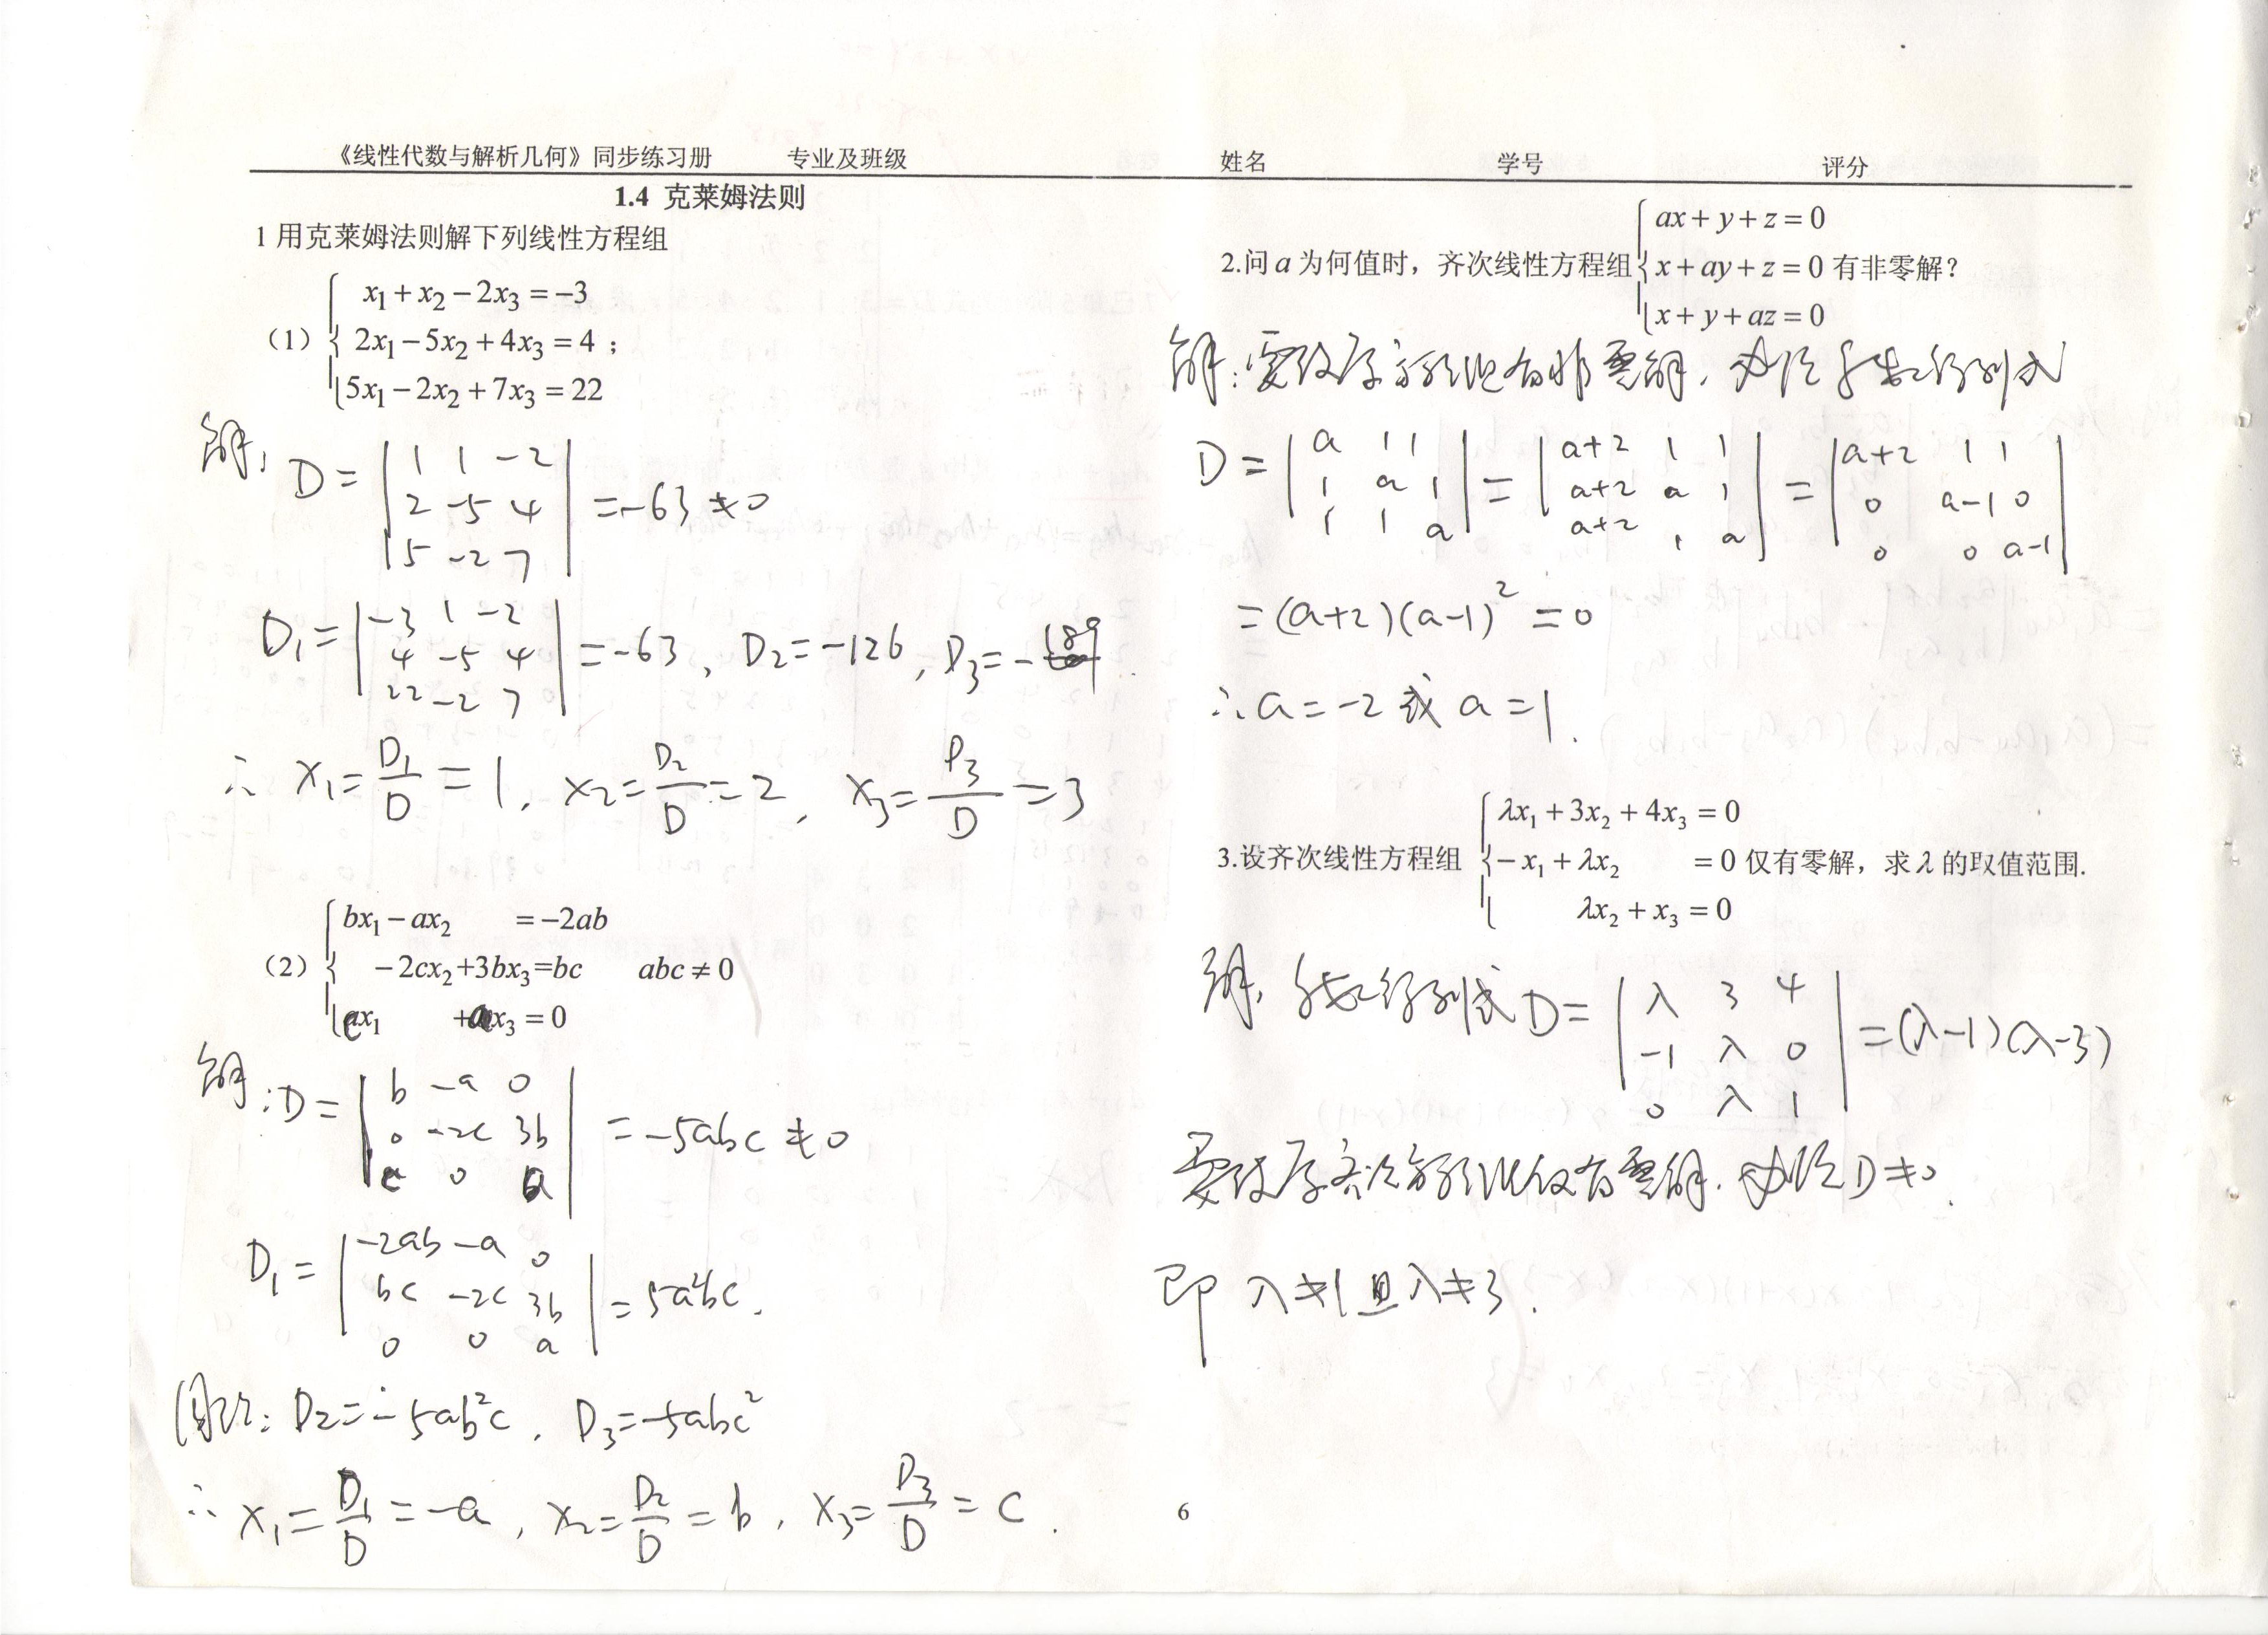 《线性代数与解析几何》同步练习册 专业及班级 姓名 学号 评分
1.4 克莱姆法则
1 用克莱姆法则解下列线性方程组
(1) { x₁ + x₂ − 2x₃ = −3
2x₁ − 5x₂ + 4x₃ = 4 ;
5x₁ − 2x₂ + 7x₃ = 22
解: D = | 1 1 −2
2 −5 4
5 −2 7 | = −63 ≠ 0
D₁ = | −3 1 −2
4 −5 4
22 −2 7 | = −63, D₂ = −126, D₃ = −189.
∴ x₁ = D₁/D = 1, x₂ = D₂/D = 2, x₃ = D₃/D = 3
(2) { bx₁ − ax₂ = −2ab
−2cx₂ + 3bx₃ = bc abc ≠ 0
cx₁ + ax₃ = 0
解: D = | b −a 0
0 −2c 3b
c 0 a | = −5abc ≠ 0
D₁ = | −2ab −a 0
bc −2c 3b
0 0 a | = 5a²bc.
同理: D₂ = −5ab²c, D₃ = −5abc²
∴ x₁ = D₁/D = −a, x₂ = D₂/D = b, x₃ = D₃/D = c.
2.问 a 为何值时，齐次线性方程组 { ax + y + z = 0
x + ay + z = 0 有非零解?
x + y + az = 0
解: 要使原方程组有非零解, 必须系数行列式
D = | a 1 1
1 a 1
1 1 a | = | a+2 1 1
a+2 a 1
a+2 1 a | = | a+2 1 1
0 a−1 0
0 0 a−1 |
= (a+2)(a−1)² = 0
∴ a = −2 或 a = 1.
3.设齐次线性方程组 { λx₁ + 3x₂ + 4x₃ = 0
−x₁ + λx₂ = 0 仅有零解，求 λ 的取值范围.
λx₂ + x₃ = 0
解, 系数行列式 D = | λ 3 4
−1 λ 0
0 λ 1 | = (λ−1)(λ−3)
要使原齐次方程组仅有零解, 必须 D ≠ 0.
即 λ ≠ 1 且 λ ≠ 3.
6